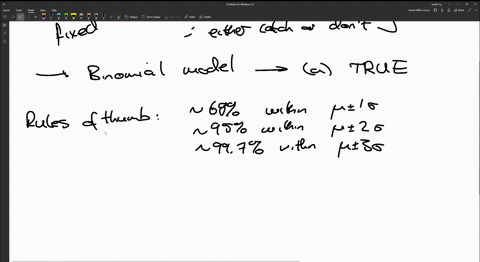 fixed : either catch or don't
→ Binomial model → (a) TRUE
Rules of thumb: ~68% within μ±1σ
~95% within μ±2σ
~99.7% within μ±3σ